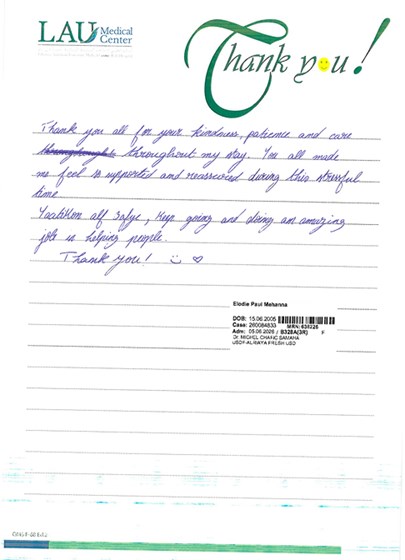 LAU Medical
Center
Thank you!
Thank you all for your kindness, patience and care
throughout my stay. You all made
me feel so supported and reassured during this stressful
time
Yaatikon alf 3afye, keep going and doing am amazing
job in helping people.
Thank you!
Elodie Paul Mehanna
DOB: 15.06.2005
Case: 260084833 MRN: 638226
Adm: 05.06.2026 / B328A(3R) F
Dr. MICHEL CHAFIC SAMAHA